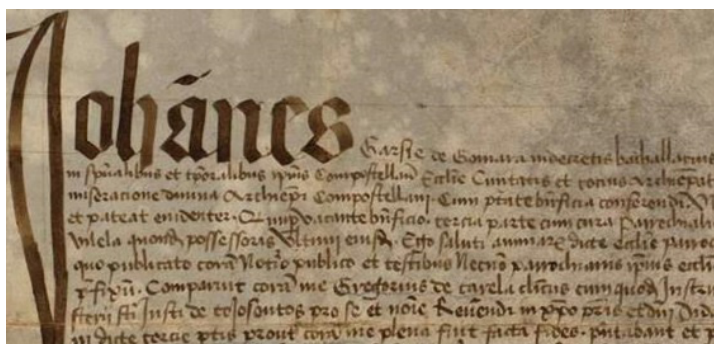 Johānes
Garsie de Gomara in decretis bachallarius
in spūalibus et tpōralibus ipīus Compostellañ Ecclie Ciuitatis et tocius Archiepat
miseracione diuina Archiepī Compostellañ. Cum ptāte bn̄ficia conferendi.
et pateat euidenter. vacante bn̄ficio. tercia parte cum cura parrochiali
vilela quond possessoris vltimi eiusd. saluti animaꝝ dicte Ecclie
quo publicato corā Notˀio publico et testibus Necnō parrochianis ipsius eccli
p̄fixū. Comparuit corā me Gregorius de varela clicus cum quod Instru
sterij sti Justi de tojosoutos pro se et noīe Reuendi in xpo pris et dni Did
in dicte tercie ptis prout corā me plena fuit facta fides. pn̄tabant et p